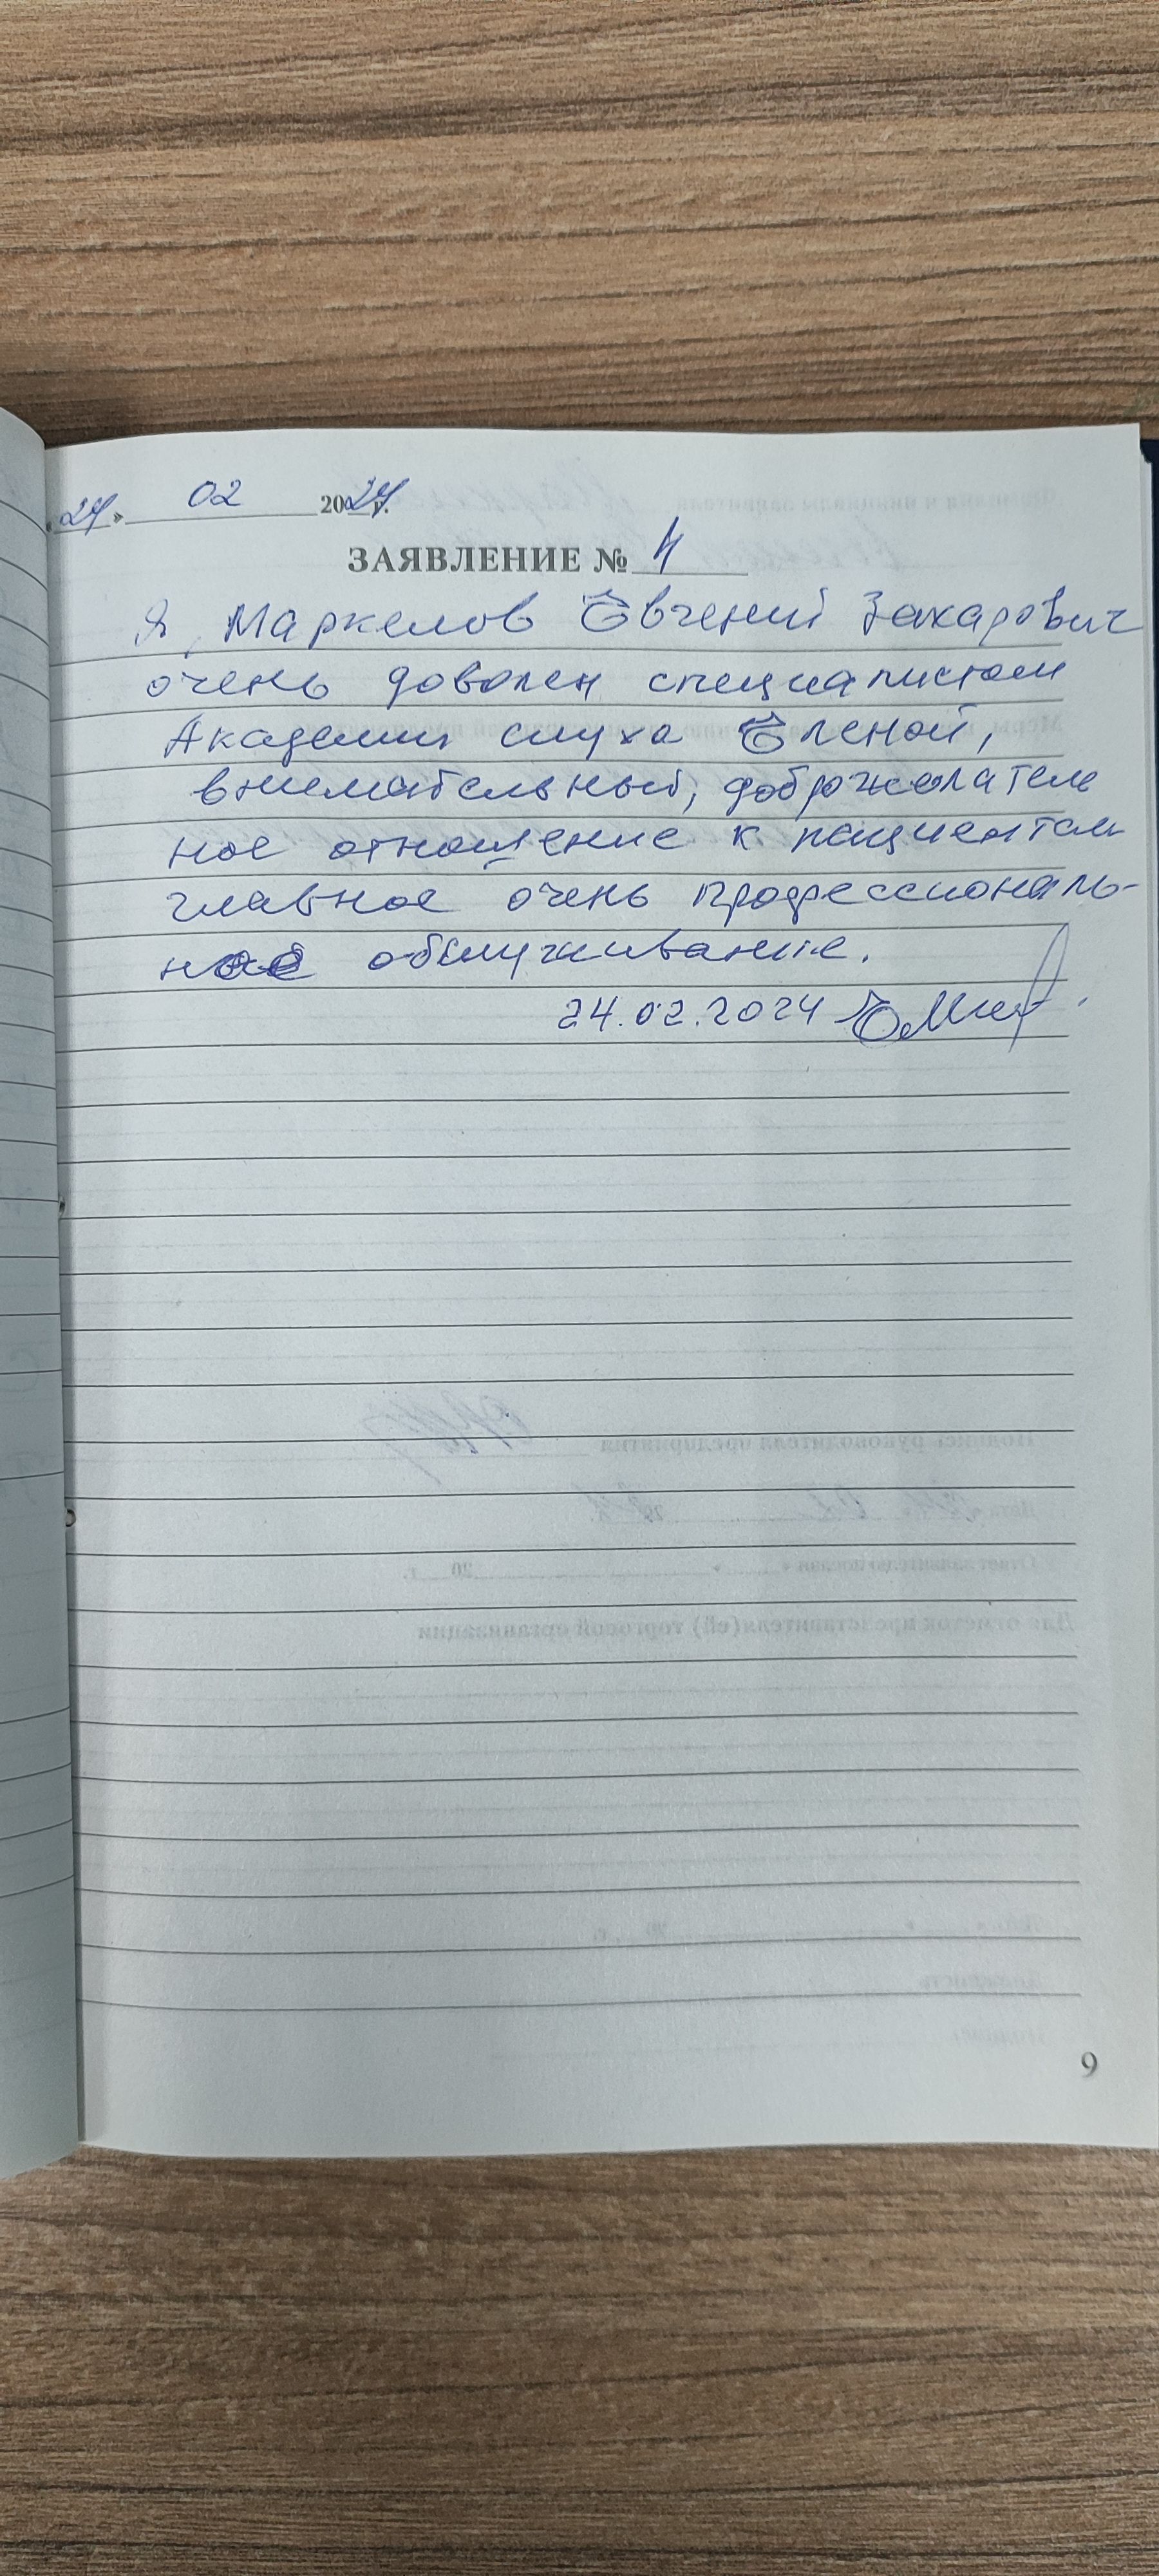 «24» 02 2024 г.
ЗАЯВЛЕНИЕ № 4
Я, Маркелов Евгений Захарович
очень доволен специалистом
Академии слуха Еленой,
внимательный, доброжелатель
ное отношение к пациентам
главное очень профессиональ-
ное обслуживание.
24.02.2024
9